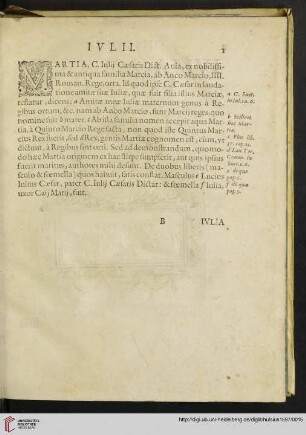 IVLII.
1
MARTIA, C. Iulij Cæsaris Dict. Auia, ex nobilissi-
ma & antiqua familia Marcia, ab Anco Marcio, IIII.
Roman. Rege orta. Id quod ipse C. Cæsar in lauda-
tione amitæ suæ Iuliæ, quæ fuit filia istius Marciæ,
testatur, dicens: a Amitæ meæ Iuliæ maternum genus à Re-
gibus ortum, &c. nam ab Anco Marcio, sunt Marcij reges, quo
nomine fuit b mater. c Ab ista familia nomen accepit aqua Mar-
tia, à Quinto Marcio Rege facta, non quod iste Quintus Mar-
cius Rex fuerit, sed d Rex, gentis Martiæ cognomen est, cum, vt
dictum, à Regibus orti sint. Sed ad demonstrandum, quomo-
do hæc Martia originem ex hac stirpe sumpserit, aut quis ipsius
fuerit maritus, authores mihi desunt. De duobus liberis (ma-
sculo & fœmella) quos habuit, satis constat. Masculus e Lucius
Iulius Cæsar, pater C. Iulij Cæsaris Dictat: & fœmella f Iulia,
vxor Caij Marij, fuit.
a C. Sueto.
in Iul. ca. 6.
b
c Plin. lib.
e de quo
pag.
f de qua
pag.
B
IVLIA
UNIVERSITÄTS-
BIBLIOTHEK
HEIDELBERG